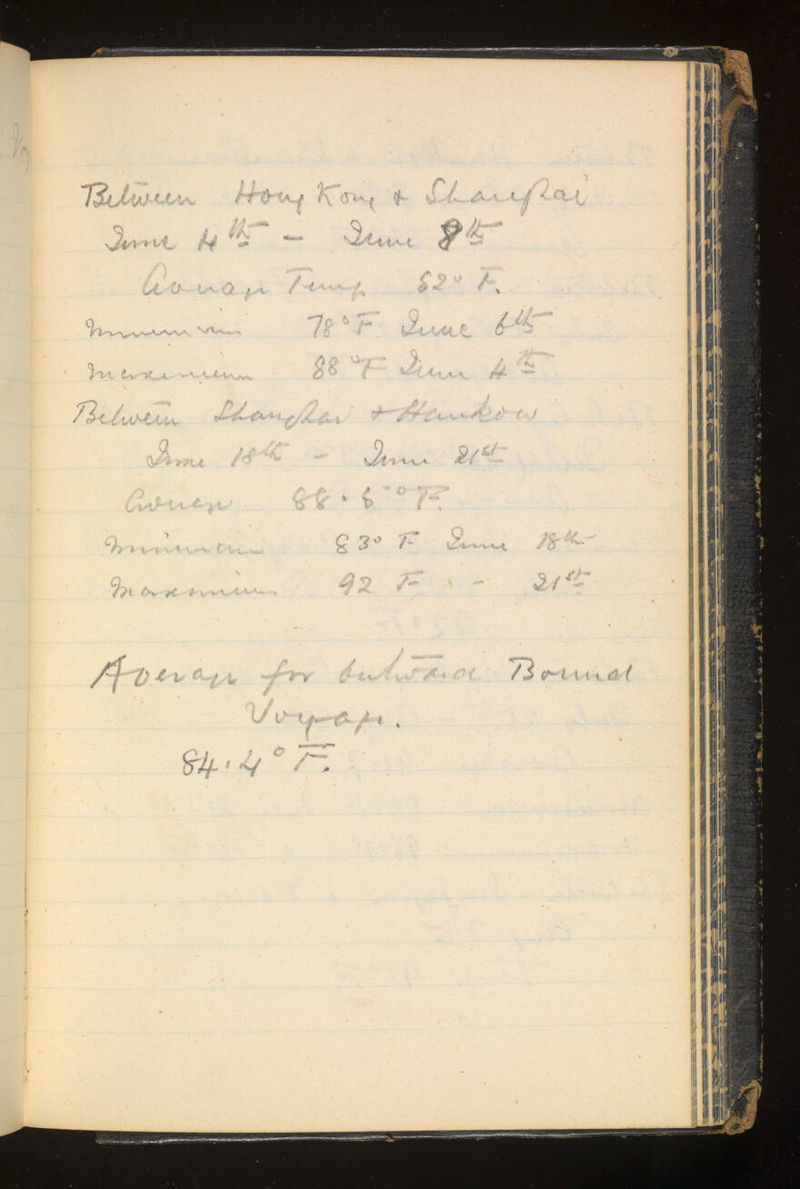 Between Hong Kong & Shanghai
June 4th - June 8th
Average Temp 82° F.
Minimum 78° F June 6th
Maximum 88° F June 4th
Between Shanghai & Hankow
June 18th - June 21st
Average 88.5° F.
Minimum 83° F June 18th
Maximum 92 F - 21st
Average for outward Bound
Voyage.
84.4° F.